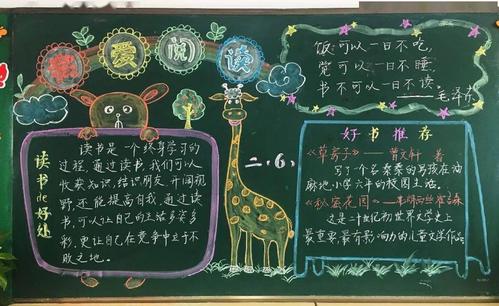 我爱阅读
饭可以一日不吃,
觉可以一日不睡,
书不可以一日不读。
——毛泽东
读书de好处
读书是一个终身学习的
过程,通过读书,我们可以
收获知识,结识朋友,开阔视
野,还能提高自我,通过读
书,可以让自己的生活多姿多
彩,更让自己在竞争中立于不
败之地。
二.(6)
好书推荐
《草房子》——曹文轩 著
写了个名桑桑的男孩在油
麻地小学六年的校园生活。
《秘密花园》
这是二十世纪初世界文学史上
最重要、最有影响力的儿童文学作品